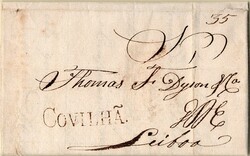 35
Thomas F. Dyson &Co
COVILHÃ.
Lisboa